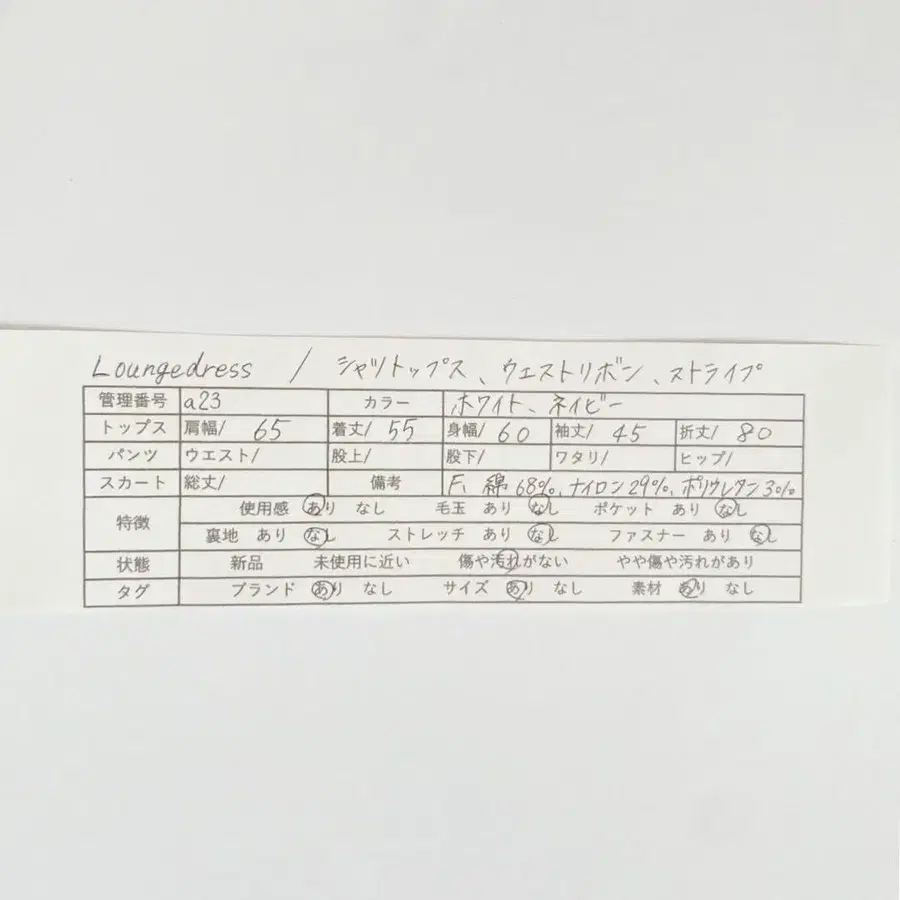 Loungedress / シャツトップス、ウエストリボン、ストライプ
管理番号 a23 カラー ホワイト、ネイビー
トップス 肩幅/ 65 着丈/ 55 身幅/ 60 袖丈/ 45 裄丈/ 80
パンツ ウエスト/ 股上/ 股下/ ワタリ/ ヒップ/
スカート 総丈/ 備考 F、綿68%、ナイロン29%、ポリウレタン3%
特徴 使用感 あり なし 毛玉 あり なし ポケット あり なし
裏地 あり なし ストレッチ あり なし ファスナー あり なし
状態 新品 未使用に近い 傷や汚れがない やや傷や汚れがあり
タグ ブランド あり なし サイズ あり なし 素材 あり なし